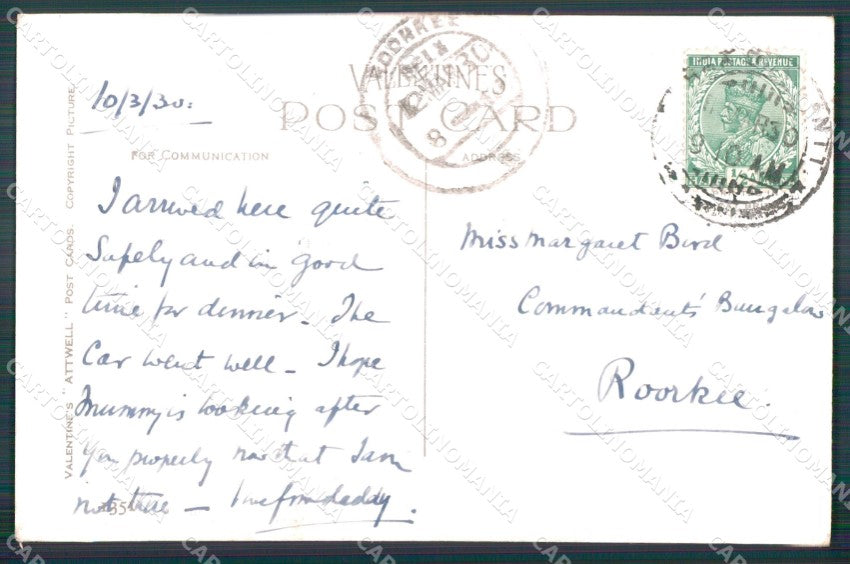 ROORKEE
VALENTINES
POST CARD
FOR COMMUNICATION
ADDRESS
INDIA POSTAGE & REVENUE
VALENTINE'S "ATTWELL" POST CARDS. COPYRIGHT PICTURE
10/3/30:
I arrived here quite
Safely and in good
time for dinner – The
Car went well – I hope
Mummy is looking after
you properly now that I am
not there – love from daddy.
Miss Margaret Bird
Commandants' Bungalow
Roorkee.
CARTOLINOMANIA